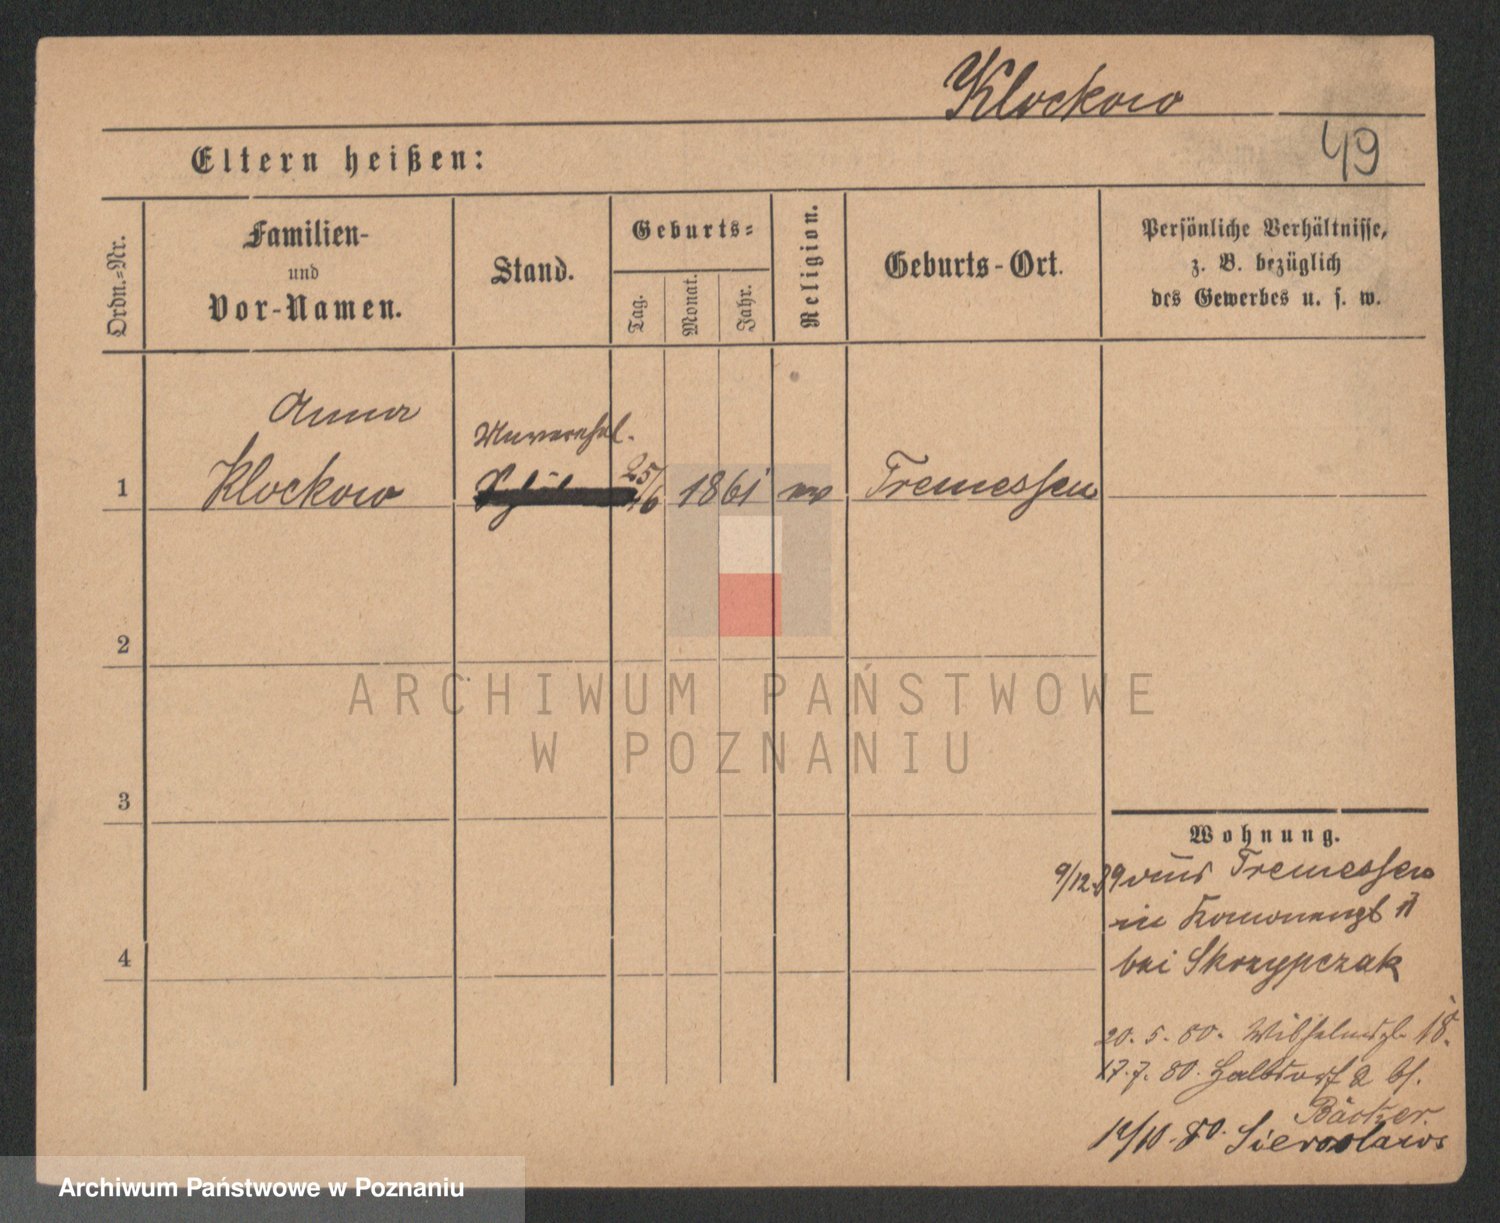 Klockow
49
Eltern heißen:
Ordn.-Nr.
Familien-
und
Vor-Namen.
Stand.
Geburts-
Tag.
Monat.
Jahr.
Religion.
Geburts-Ort.
Persönliche Verhältnisse,
z. B. bezüglich
des Gewerbes u. s. w.
Anna
Unverehel.
1 Klockow 25/6 1861 Tremessen
2
ARCHIWUM PAŃSTWOWE
W POZNANIU
3
Wohnung.
9/12.89 aus Tremessen
in
4
bei Skrzypczak
20. 5. 80. 18.
17. 7. 80. Halbdorf 2 bf.
Bäcker.
12/10. 80. Sieroslaw
Archiwum Państwowe w Poznaniu